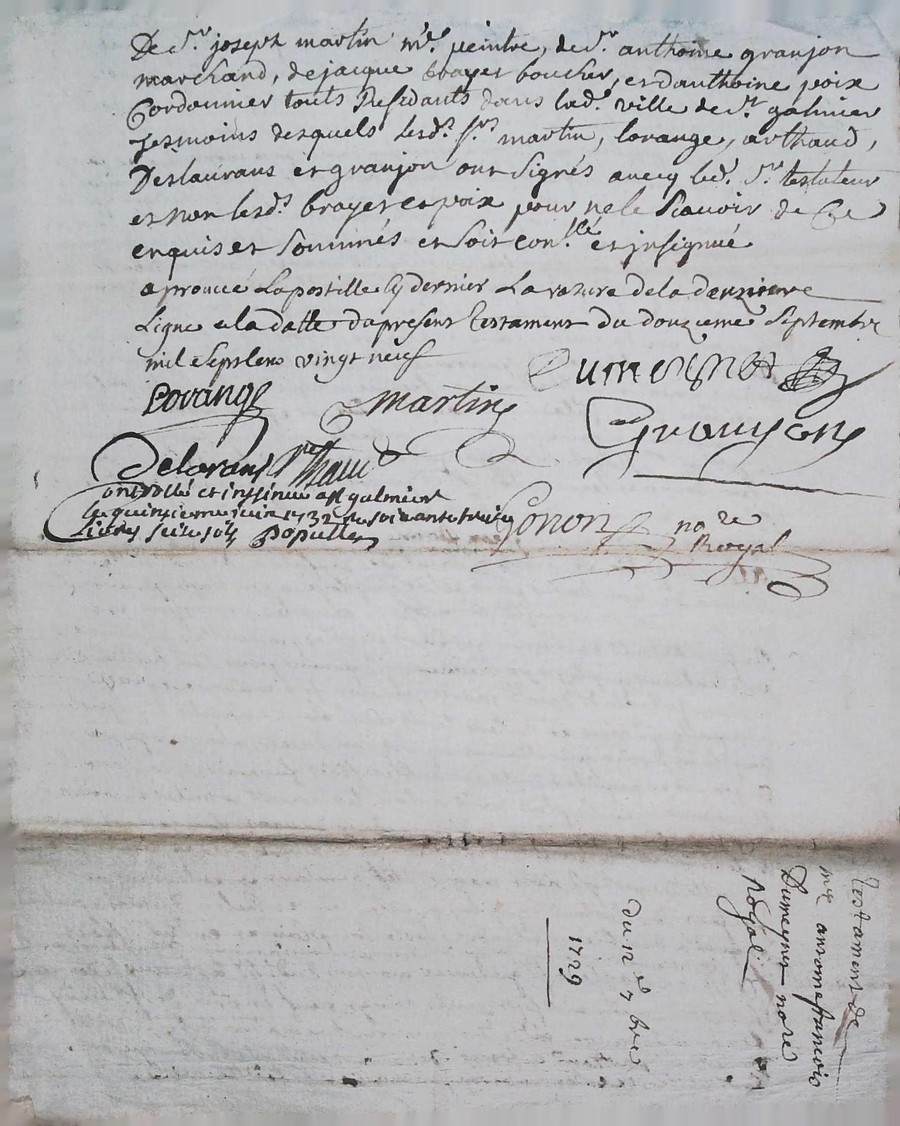 De sr. joseph martin me. peintre, de sr. anthoine granjon
marchand, de jacque brayer boucher, et danthoine poix
Cordonnier touts Residants dans lad. ville de st. galmier
Tesmoins desquels lesd. srs. martin, lorange, arthaud,
Deslaurans et granjon ont signés avecq led. sr. testateur
et non lesd. brayer et poix pour ne le scavoir de ce
enquis et sommés et soit conlle. et insignué
aprouvé Lapostille cy dernier La rature de la deuzieme
Ligne et la datte du present testament du douzieme septembre
mil sept cens vingt neuf
Dumeynet
Lorange
martin
Granjon
Delorans
arthaud
controllé et insinué a st galmier
le quinsieme juin 1732 soixante treize
livres seize sols Populle
Gonon nore
Royal
Testament de
me antome francois
Dumeynet nore
Royal
du 12e 7bre
1729